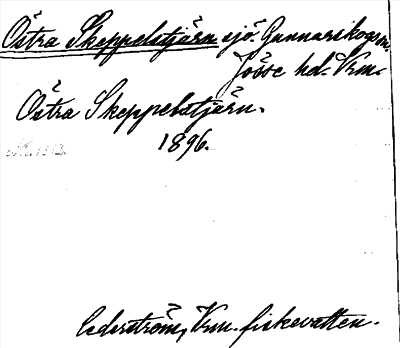 Östra Skeppelstjärn sjö. Gunnarskog sn.
Jösse hd. Vrm.
Östra Skeppelstjärn.
1896.
Cederström, Vrm. fiskevatten.